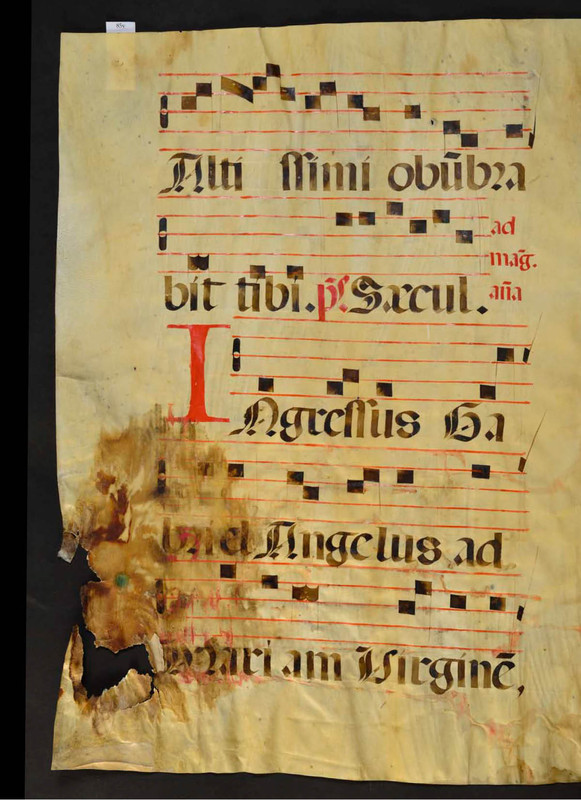 Alti ssimi obūbra
bit tibi. ps̄ Sæcul. ad mag̃. añа
INgressus Ga
briel Angelus ad
Mari am Virginē,